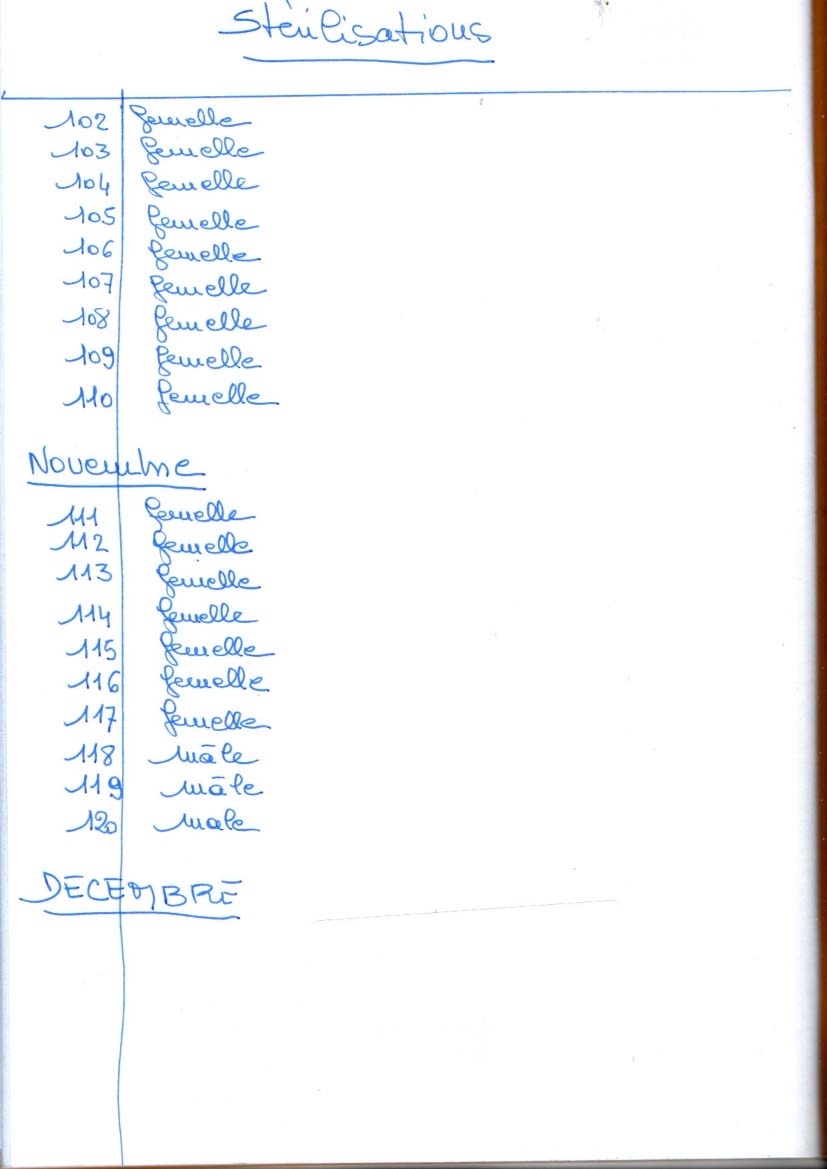 Stérilisations
102 femelle
103 femelle
104 femelle
105 femelle
106 femelle
107 femelle
108 femelle
109 femelle
110 femelle
Novembre
111 femelle
112 femelle
113 femelle
114 femelle
115 femelle
116 femelle
117 femelle
118 mâle
119 mâle
120 male
DECEMBRE